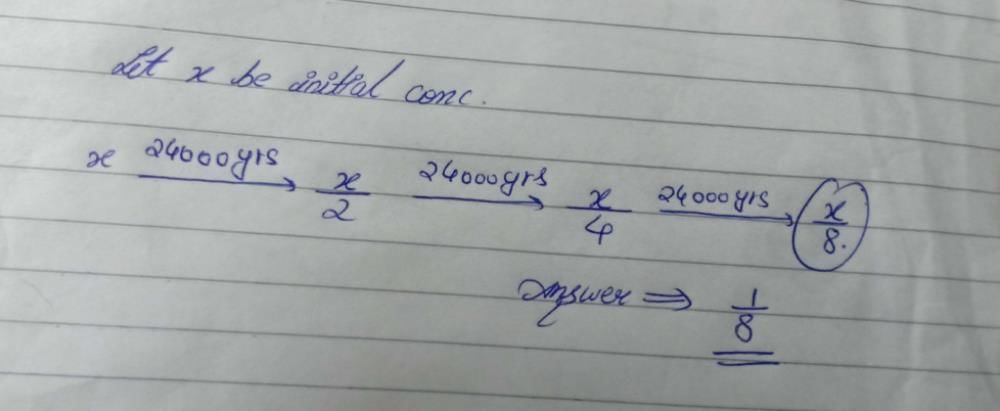 Let x be initial conc.
x 24000yrs → x/2 24000yrs → x/4 24000yrs → x/8.
Answer ⇒ 1/8